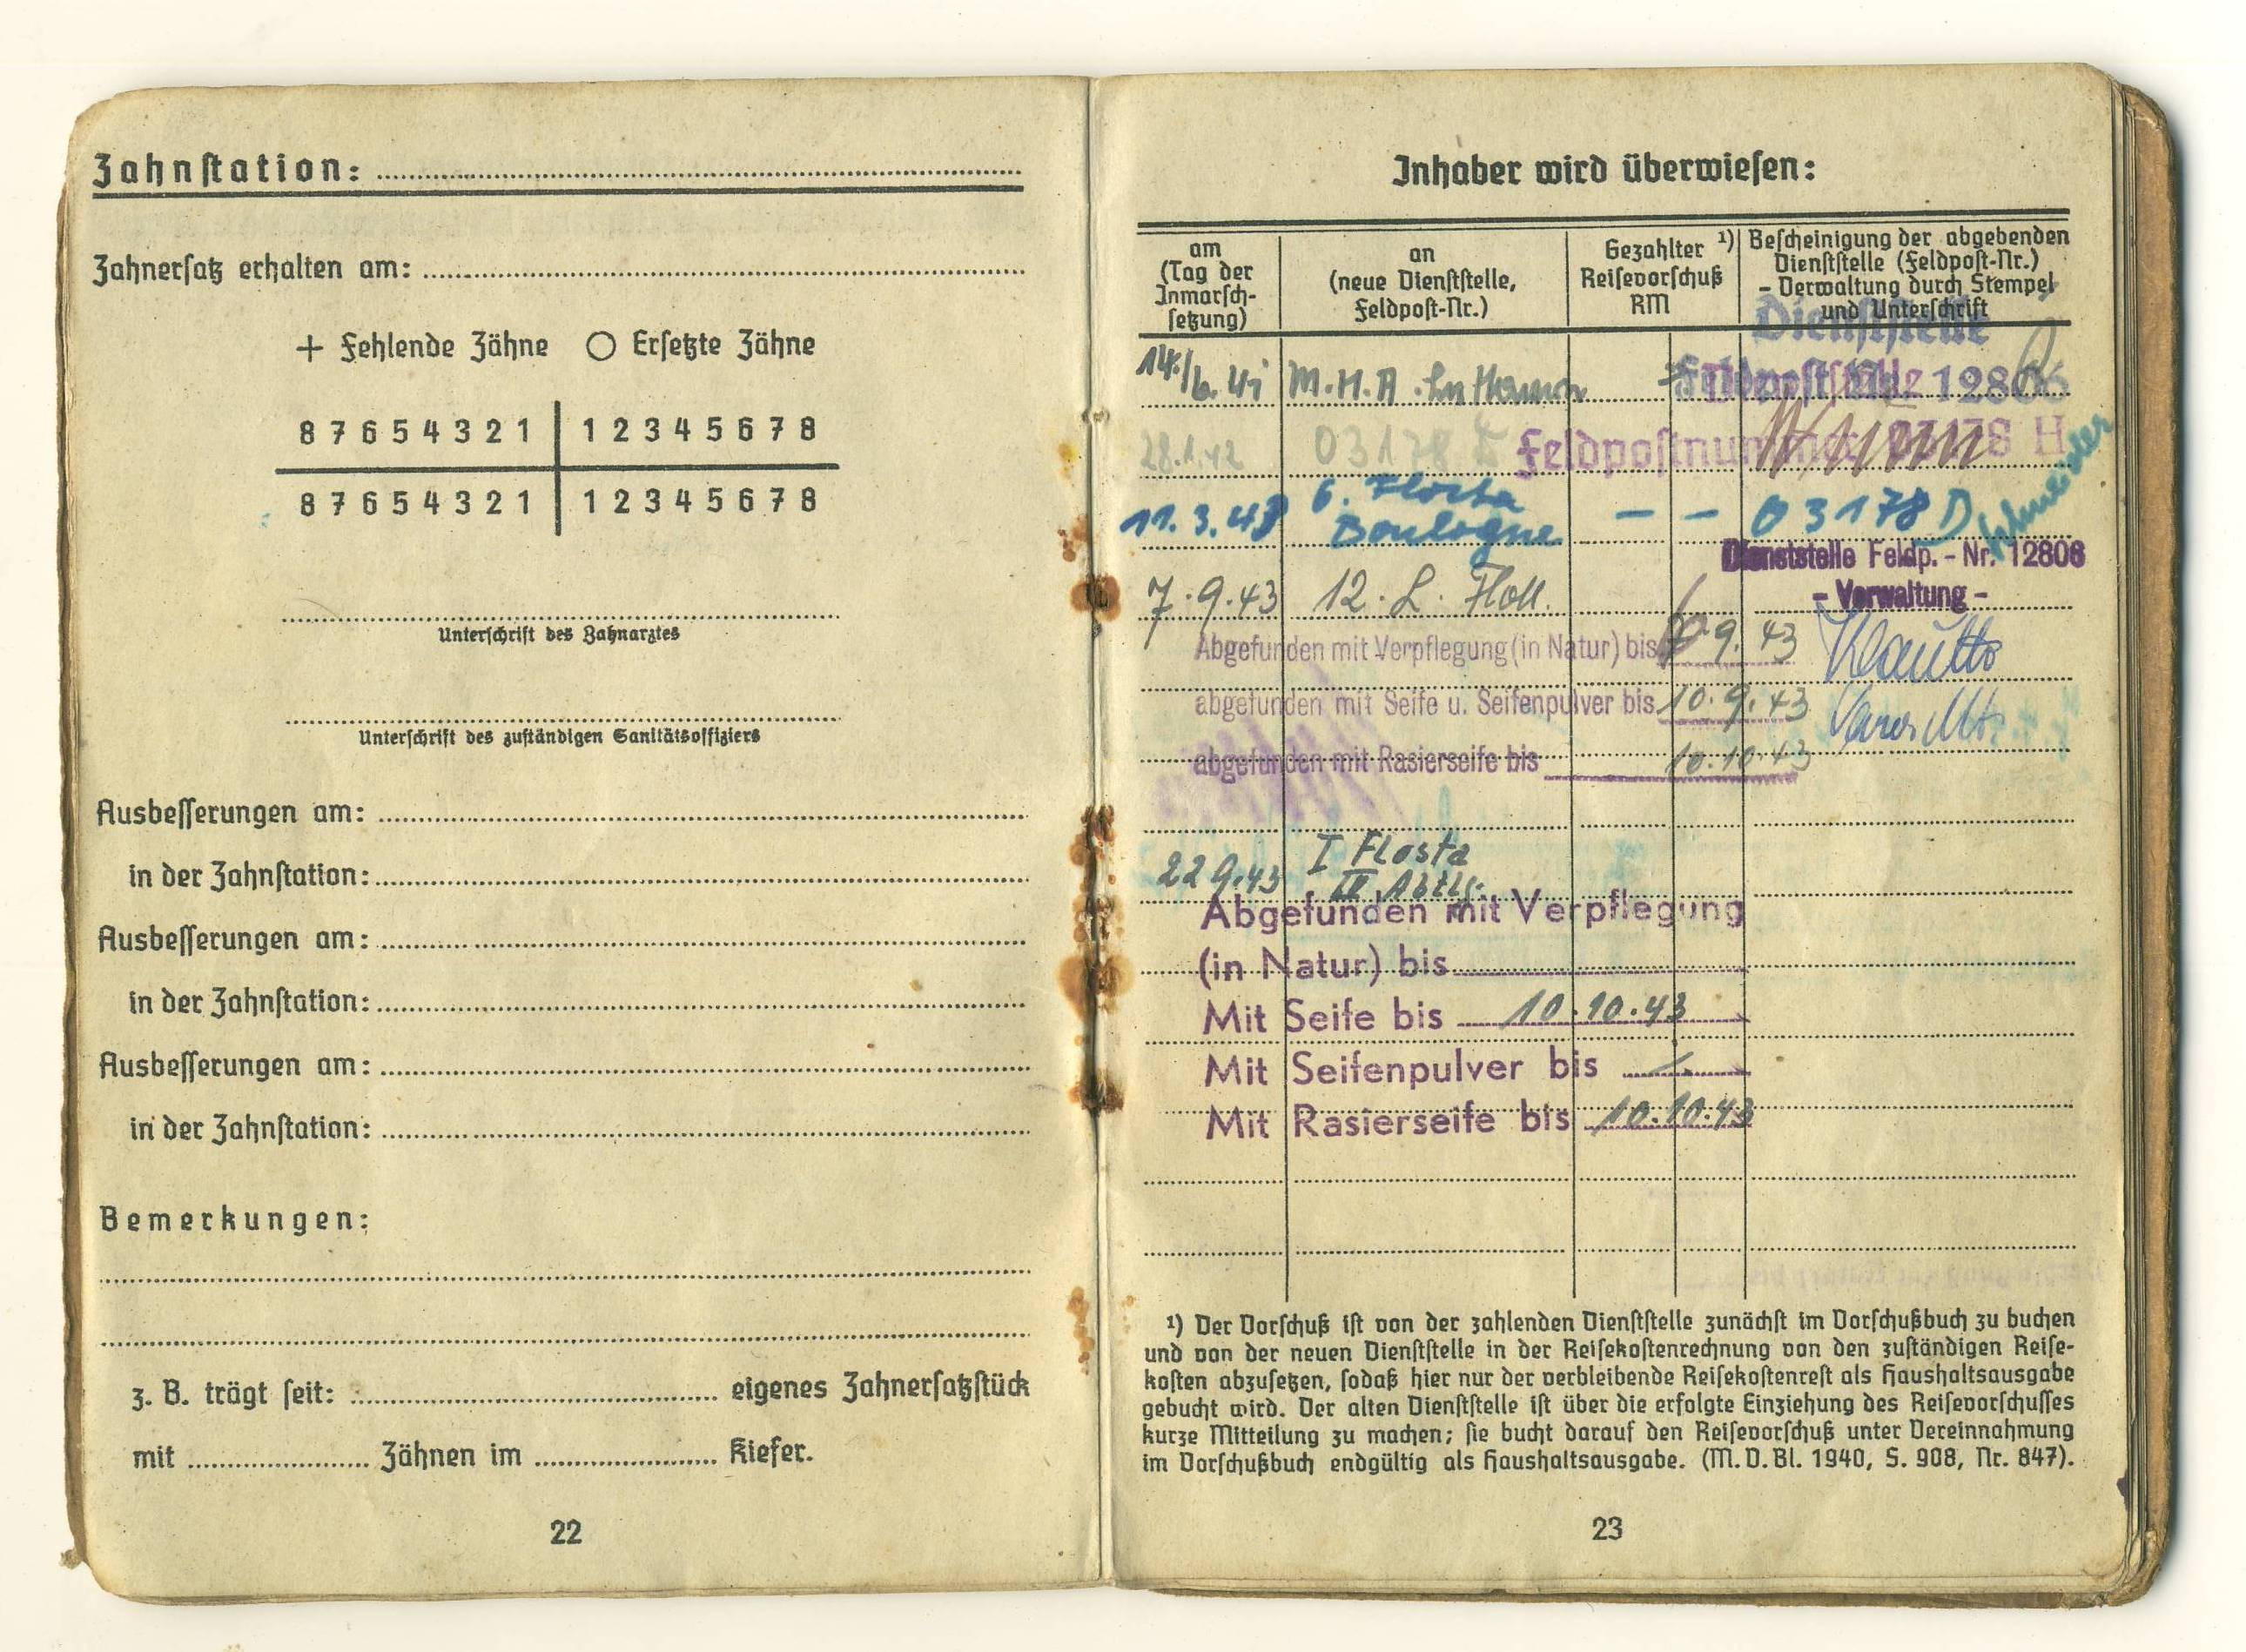 Zahnstation:
Zahnersatz erhalten am:
+ Fehlende Zähne ○ Ersetzte Zähne
8 7 6 5 4 3 2 1 | 1 2 3 4 5 6 7 8
8 7 6 5 4 3 2 1 | 1 2 3 4 5 6 7 8
Unterschrift des Zahnarztes
Unterschrift des zuständigen Sanitätsoffiziers
Ausbesserungen am:
in der Zahnstation:
Ausbesserungen am:
in der Zahnstation:
Ausbesserungen am:
in der Zahnstation:
Bemerkungen:
z. B. trägt seit: eigenes Zahnersatzstück
mit Zähnen im Kiefer.
22
Inhaber wird überwiesen:
am
(Tag der
Inmarsch-
setzung)
an
(neue Dienststelle,
Feldpost-Nr.)
Gezahlter ¹)
Reisevorschuß
RM
Bescheinigung der abgebenden
Dienststelle (Feldpost-Nr.)
- Verwaltung durch Stempel
und Unterschrift
Dienststelle
14./6. 41 M.M.A. 12806
28.1.42 03178 Feldpostnummer 03178 H
11.3.43 6. Flosta
Boulogne - - 03178 D
Dienststelle Feldp.-Nr. 12806
- Verwaltung -
7.9.43 12. L. Floll.
Abgefunden mit Verpflegung (in Natur) bis 9. 43
abgefunden mit Seife u. Seifenpulver bis 10.9.43
abgefunden mit Rasierseife bis 10.10.43
22 9.43 I Flosta
III Abtlg.
Abgefunden mit Verpflegung
(in Natur) bis
Mit Seife bis 10.10.43
Mit Seifenpulver bis
Mit Rasierseife bis 10.10.43
¹) Der Vorschuß ist von der zahlenden Dienststelle zunächst im Vorschußbuch zu buchen
und von der neuen Dienststelle in der Reisekostenrechnung von den zuständigen Reise-
kosten abzusetzen, sodaß hier nur der verbleibende Reisekostenrest als Haushaltsausgabe
gebucht wird. Der alten Dienststelle ist über die erfolgte Einziehung des Reisevorschusses
kurze Mitteilung zu machen; sie bucht darauf den Reisevorschuß unter Vereinnahmung
im Vorschußbuch endgültig als Haushaltsausgabe. (M. D. Bl. 1940, S. 908, Nr. 847).
23